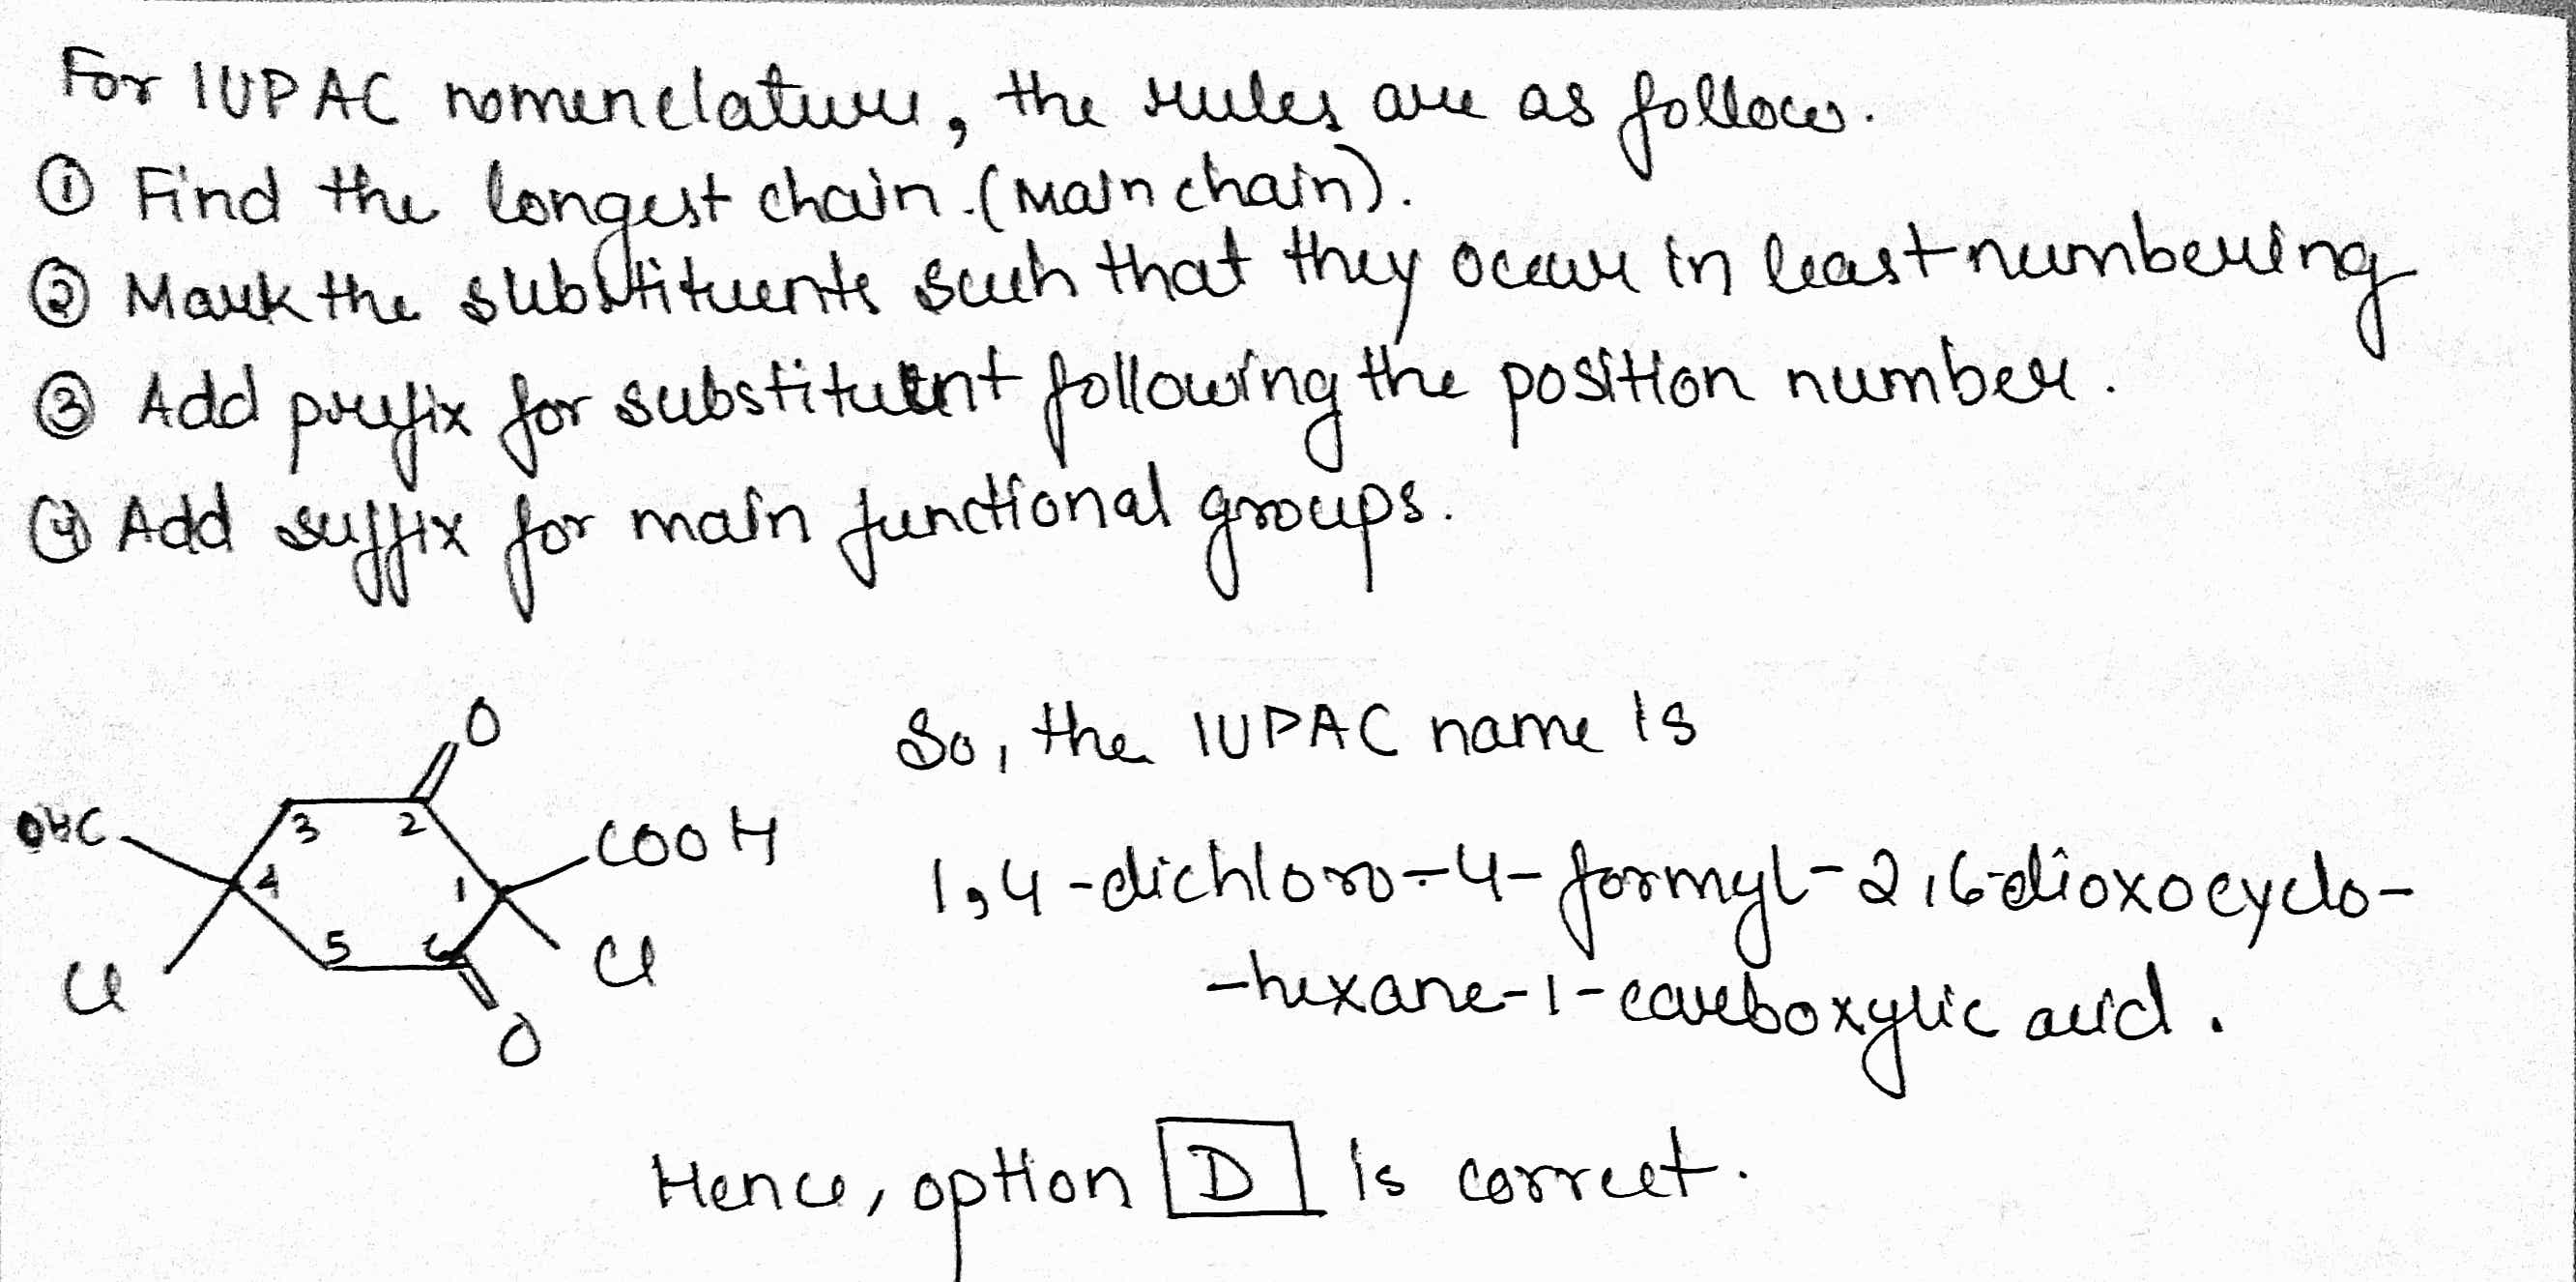 For IUPAC nomenclature, the rules are as follows.
① Find the longest chain. (Main chain).
② Mark the substituents such that they occur in least numbering
③ Add prefix for substituent following the position number.
④ Add suffix for main functional groups.
O
OHC
3 2
COOH
4 1
5 6
Cl Cl
O
So, the IUPAC name is
1,4-dichloro-4-formyl-2,6-dioxocyclo-
-hexane-1-carboxylic acid.
Hence, option D is correct.